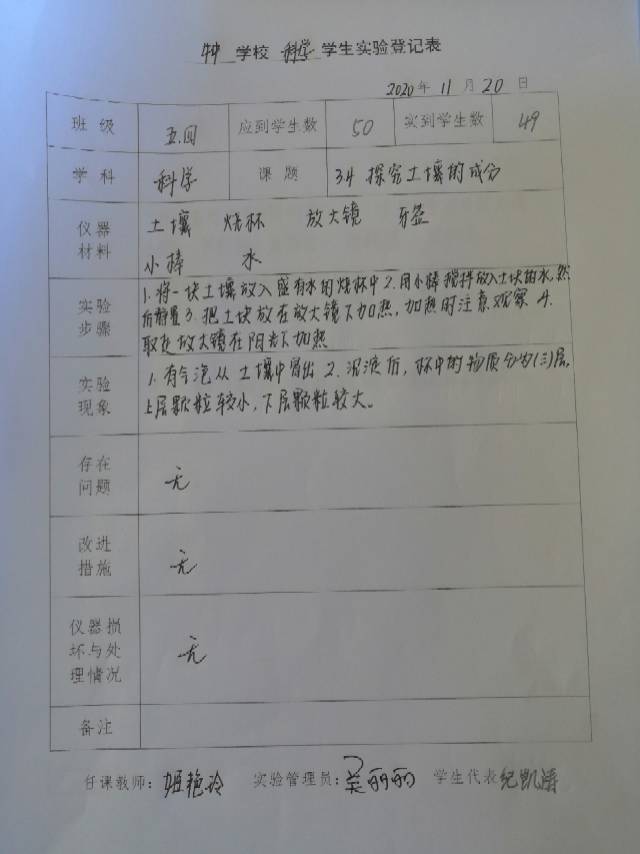 学校 科学 学生实验登记表
2020年 11月 20日
班级 五.四 应到学生数 50 实到学生数 49
学科 科学 课题 3.4 探究土壤的成分
仪器材料 土壤 烧杯 放大镜
小棒 水
实验步骤 1.将一块土壤放入盛有水的烧杯中 2.用小棒搅拌放入土块的水,然
后静置 3.把土块放在放大镜下加热,加热时注意观察 4.
取处放大镜在阳光下加热
实验现象 1.有气泡从土壤中冒出 2.沉淀后,杯中的物质分为(三)层,
上层颗粒较小,下层颗粒较大。
存在问题 无
改进措施 无
仪器损坏与处理情况 无
备注
任课教师:姬艳玲 实验管理员:吴丽丽 学生代表 纪凯涛